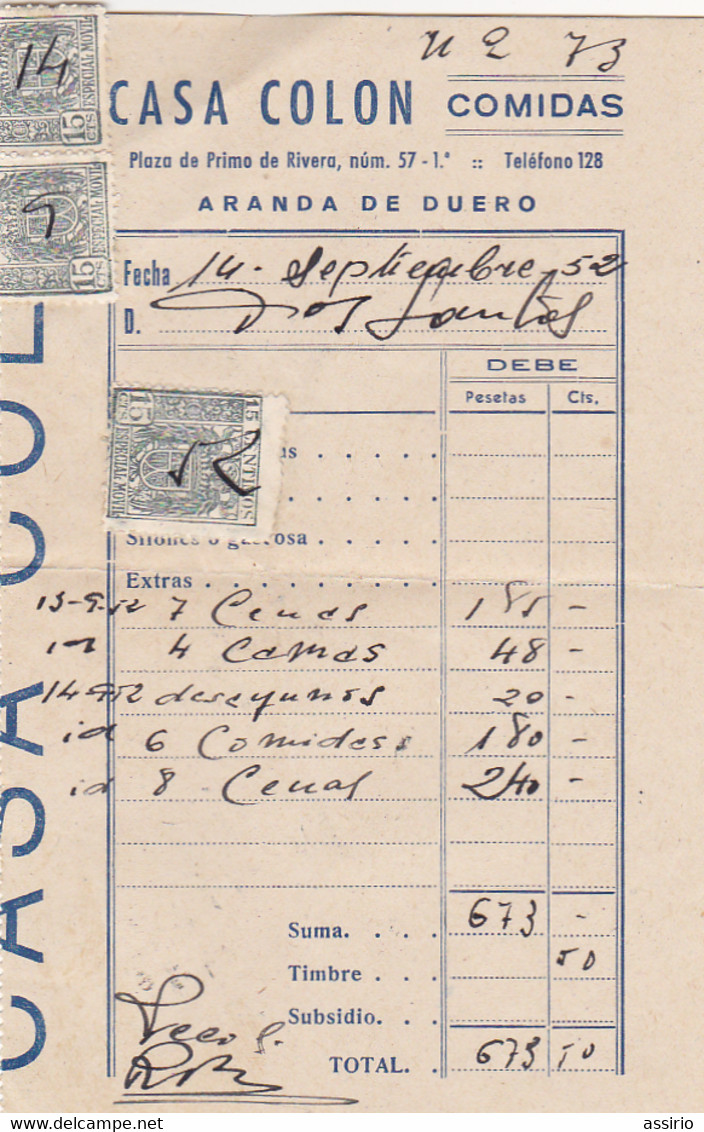 N 2 73
CASA COLON COMIDAS
Plaza de Primo de Rivera, núm. 57 - 1.ª :: Teléfono 128
ARANDA DE DUERO
14
ESPECIAL MOVIL
15 CTS
9
ESPECIAL MOVIL
15
Fecha 14 - Septiembre 52
D. Dos Santos
DEBE
Pesetas Cts.
15 CENTIMOS
15 CTS
ESPECIAL MOVIL
52
Sifones o gaseosa
Extras
13-9-52 7 Cenas 185 -
id 4 Camas 48 -
14-9-52 desayunos 20 -
id 6 Comidas 180 -
id 8 Cenas 240 -
Suma. 673 -
Timbre 50
Subsidio.
TOTAL. 673 50
CASA COL
assirio